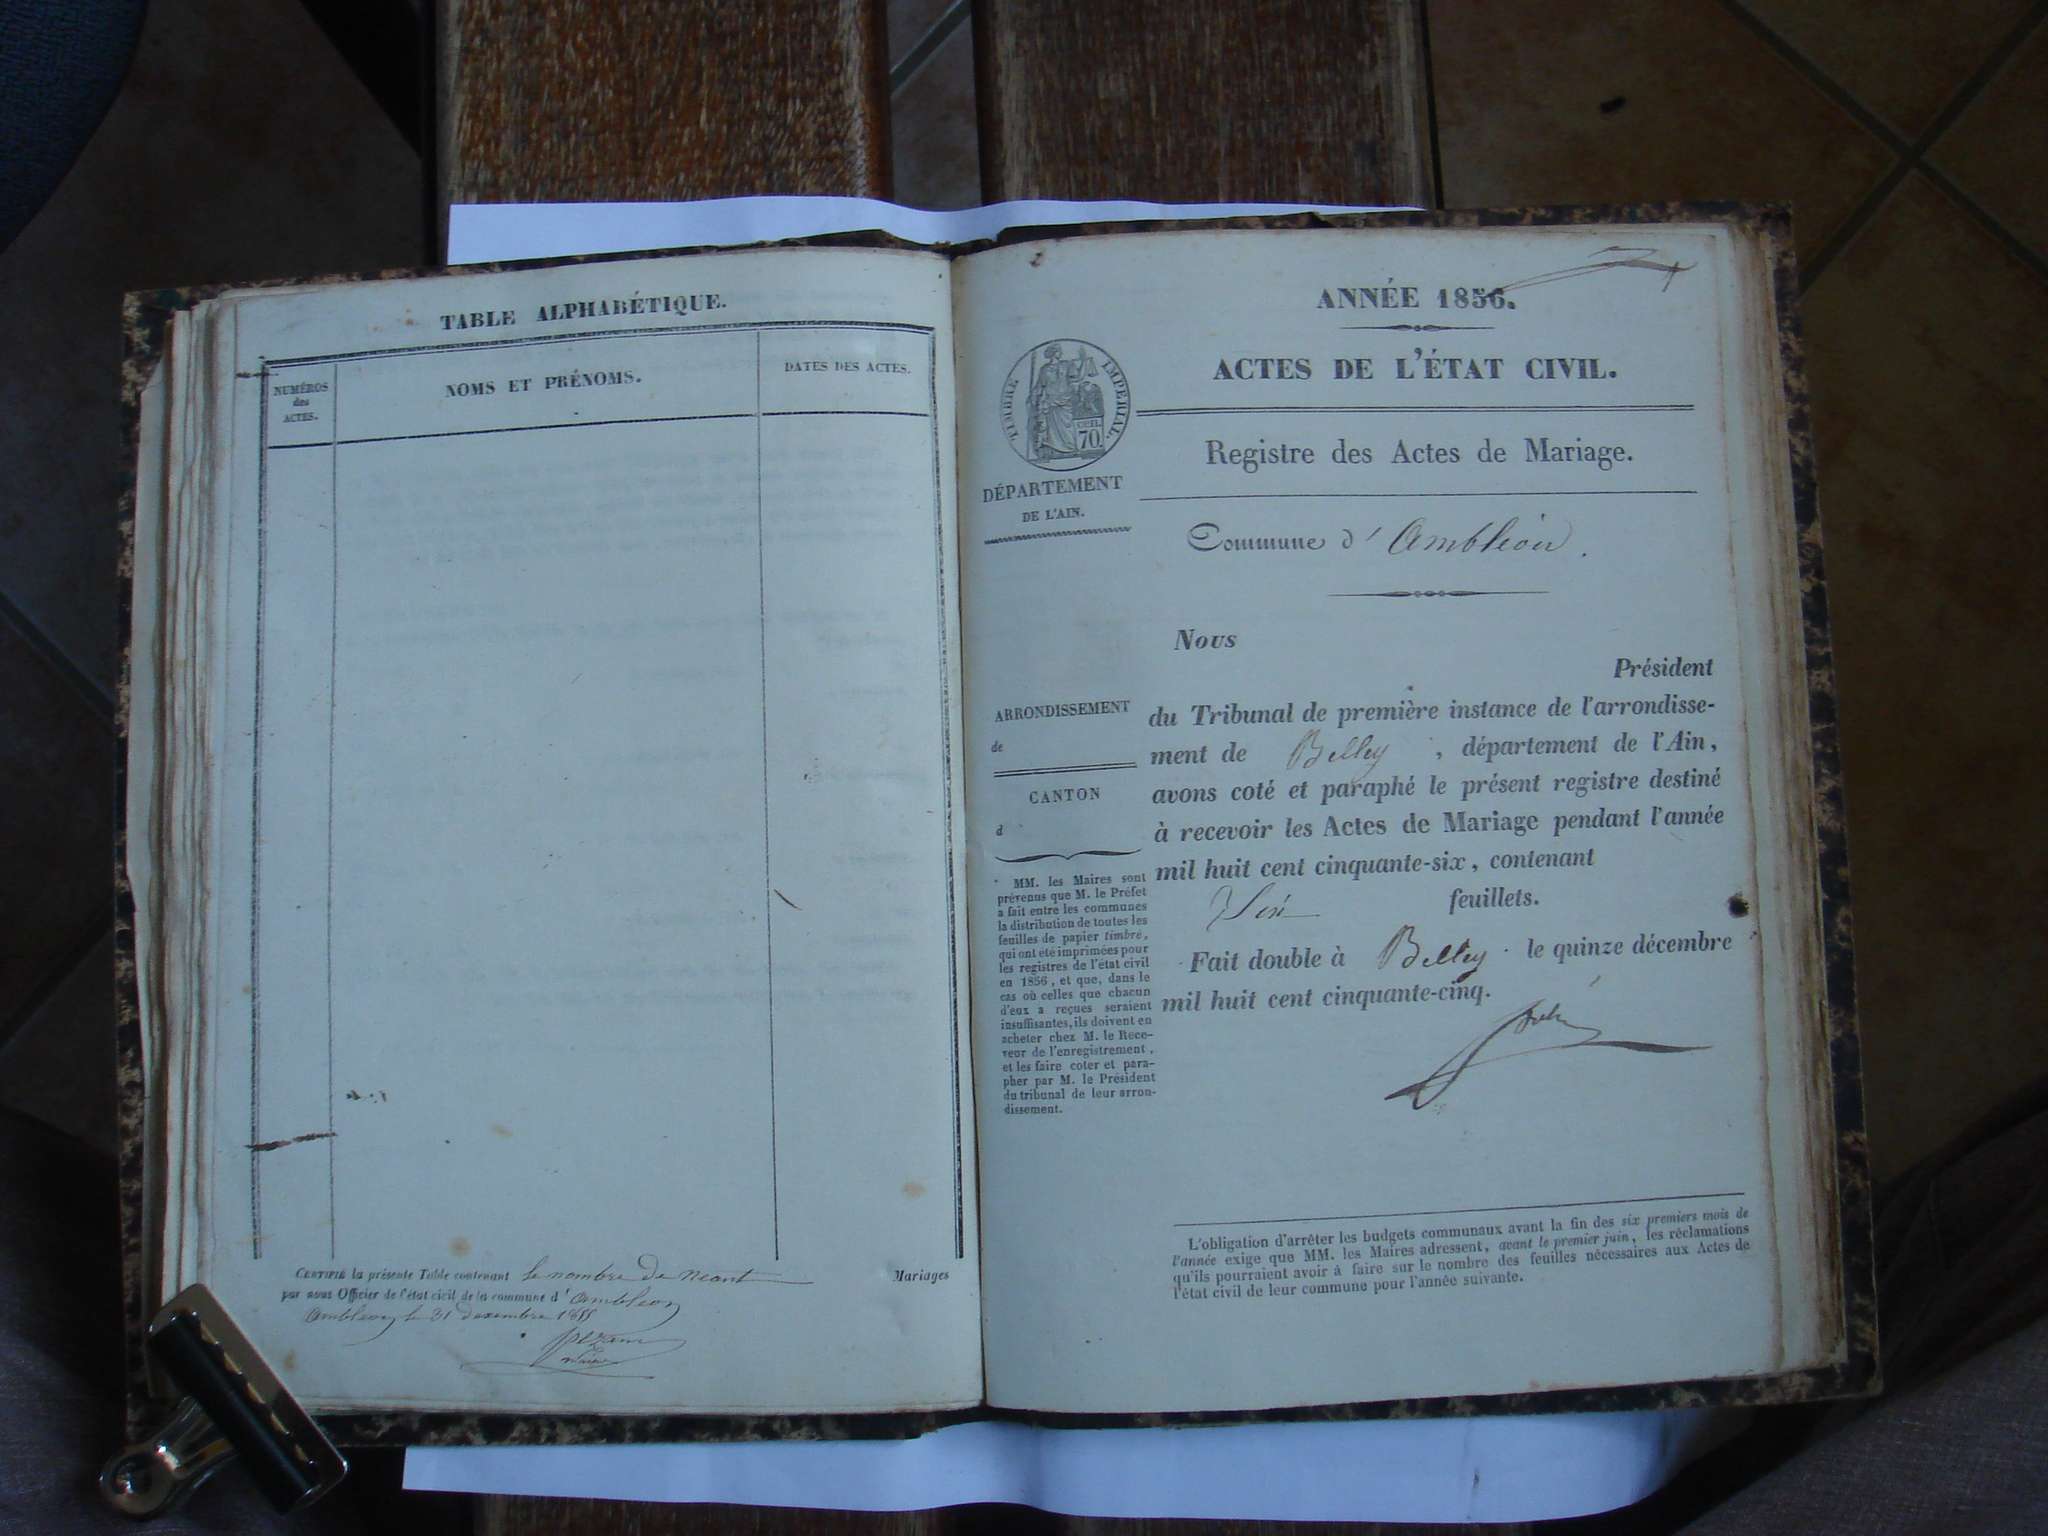 TABLE ALPHABÉTIQUE.
NUMÉROS
des
ACTES.
NOMS ET PRÉNOMS.
DATES DES ACTES.
CERTIFIÉ la présente Table contenant le nombre de neant Mariages
par nous Officier de l'état civil de la commune d'Ambleon
Ambleon le 31 decembre 1855
ANNÉE 1856.
ACTES DE L'ÉTAT CIVIL.
TIMBRE IMPERIAL.
cen.
70.
DÉPARTEMENT
DE L'AIN.
Registre des Actes de Mariage.
Commune d'Ambléon.
Nous
Président
du Tribunal de première instance de l'arrondisse-
ment de Belley, département de l'Ain,
avons coté et paraphé le présent registre destiné
à recevoir les Actes de Mariage pendant l'année
mil huit cent cinquante-six, contenant
feuillets.
Fait double à Belley le quinze décembre
mil huit cent cinquante-cinq.
ARRONDISSEMENT
de
CANTON
d
MM. les Maires sont
prévenus que M. le Préfet
a fait entre les communes
la distribution de toutes les
feuilles de papier timbré,
qui ont été imprimées pour
les registres de l'état civil
en 1856, et que, dans le
cas où celles que chacun
d'eux a reçues seraient
insuffisantes, ils doivent en
acheter chez M. le Rece-
veur de l'enregistrement,
et les faire coter et para-
pher par M. le Président
du tribunal de leur arron-
dissement.
L'obligation d'arrêter les budgets communaux avant la fin des six premiers mois de
l'année exige que MM. les Maires adressent, avant le premier juin, les réclamations
qu'ils pourraient avoir à faire sur le nombre des feuilles nécessaires aux Actes de
l'état civil de leur commune pour l'année suivante.